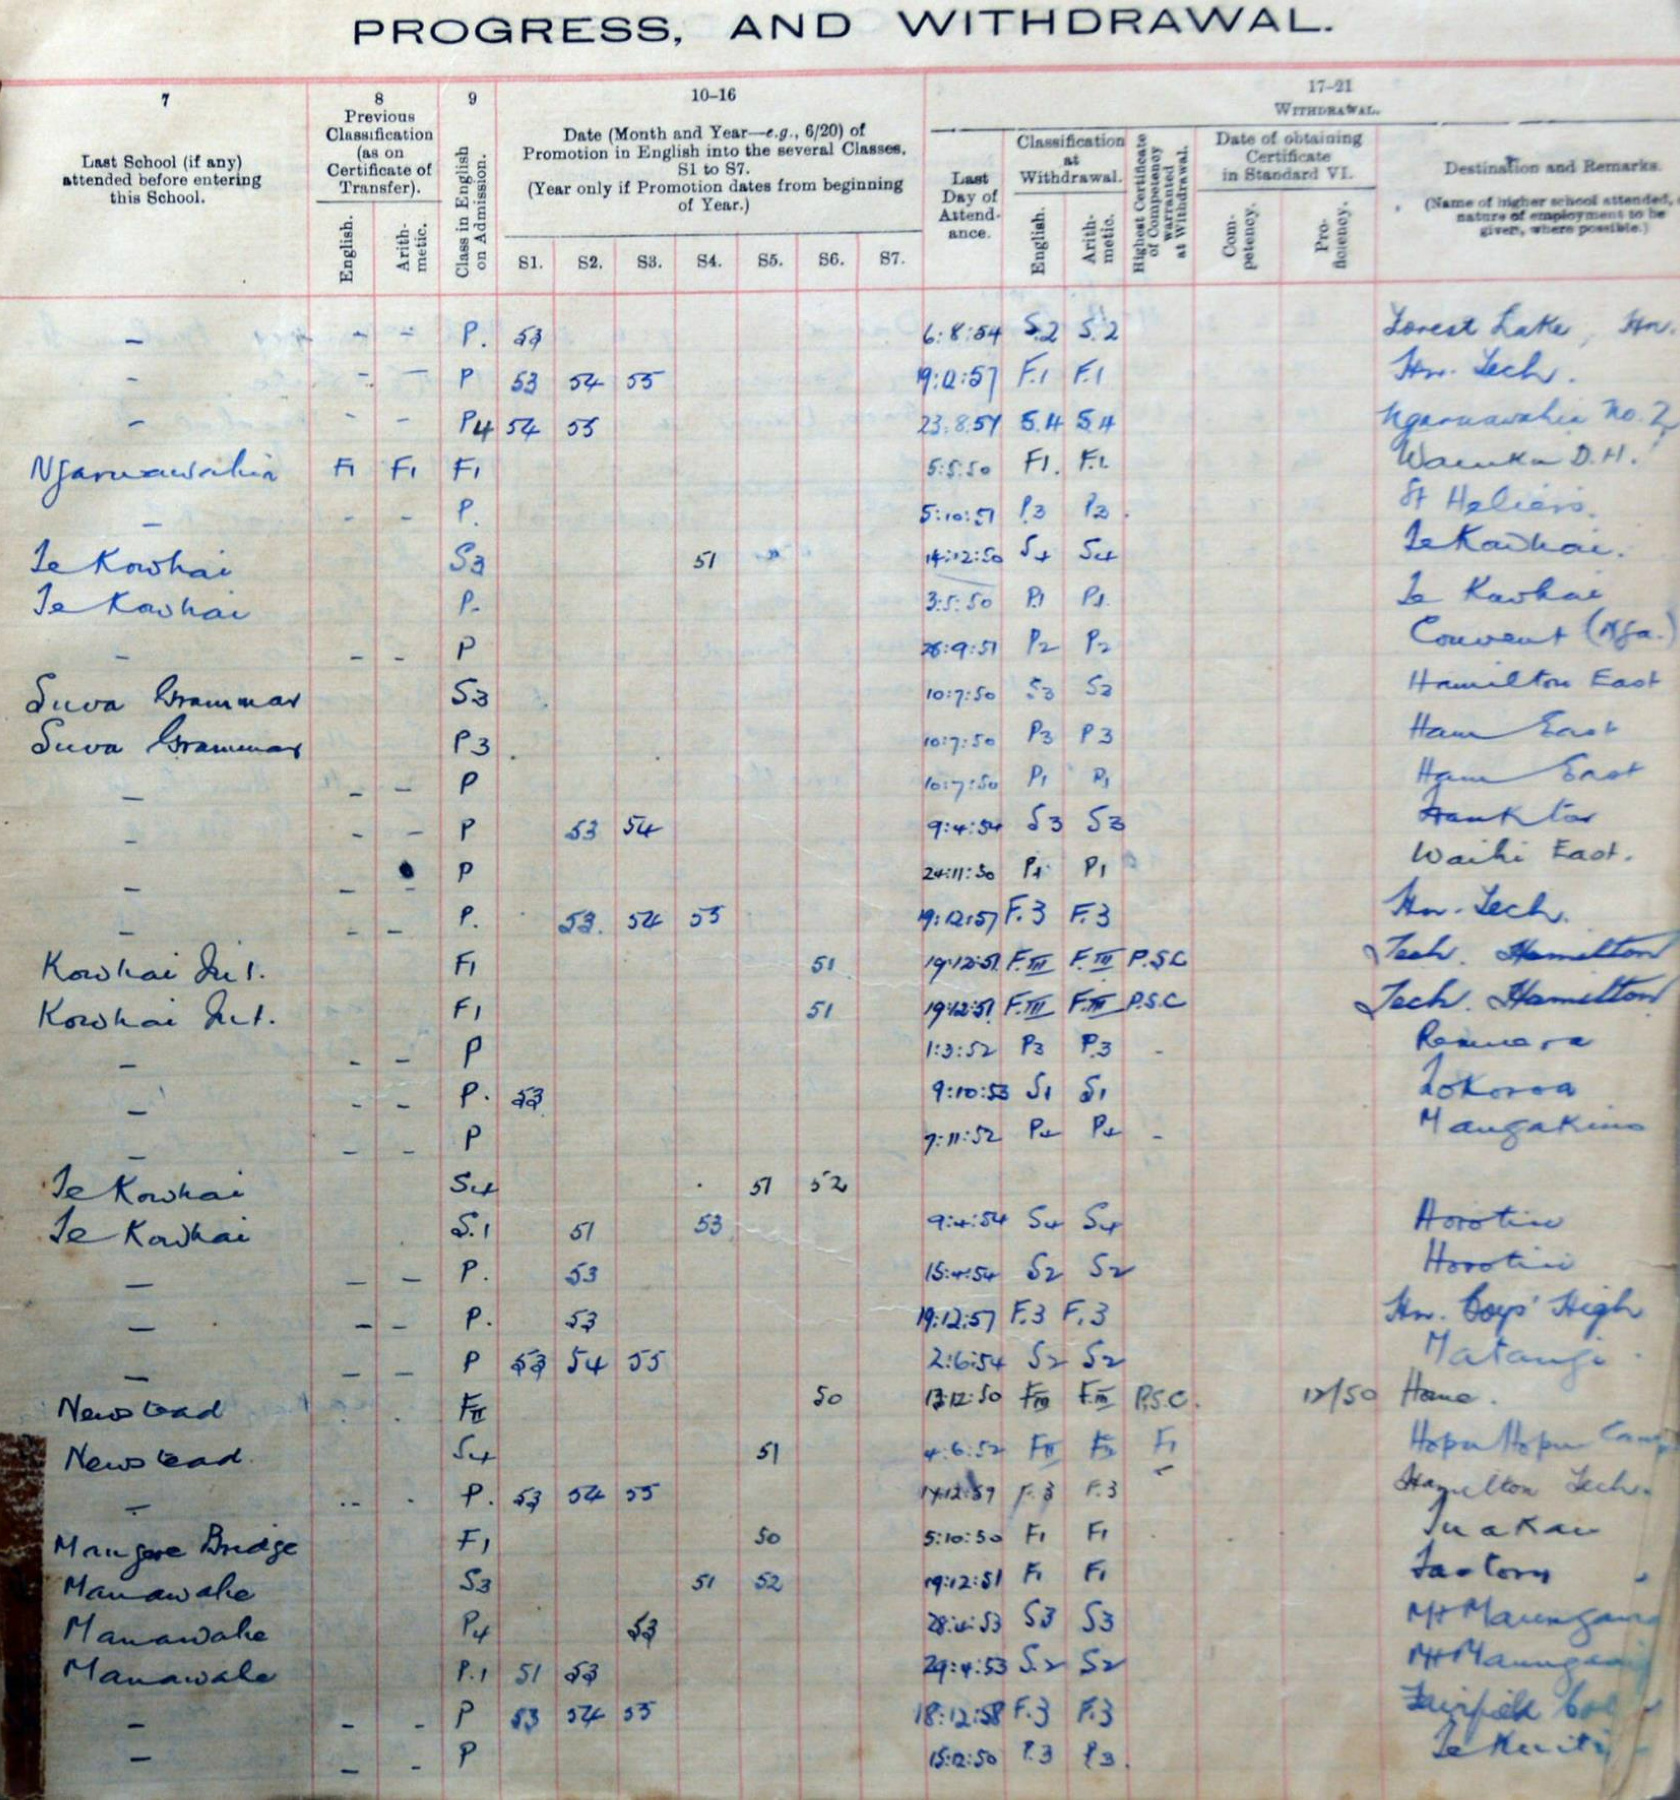 PROGRESS, AND WITHDRAWAL.
7 8 9 10–16 17–21
Last School (if any) attended before entering this School.
Previous Classification (as on Certificate of Transfer).
English. Arithmetic.
Class in English on Admission.
Date (Month and Year—e.g., 6/20) of Promotion in English into the several Classes, S1 to S7.
(Year only if Promotion dates from beginning of Year.)
S1. S2. S3. S4. S5. S6. S7.
WITHDRAWAL.
Last Day of Attendance.
Classification at Withdrawal.
English. Arithmetic.
Highest Certificate of Competency warranted at Withdrawal.
Date of obtaining Certificate in Standard VI.
Competency. Proficiency.
Destination and Remarks.
(Name of higher school attended, nature of employment to be given, where possible.)
– – – P. 53 6:8:54 S.2 S.2 Forest Lake, Hn.
– – – P 53 54 55 F.1 F.1 Hn. Tech.
– – – P4 54 55 S.4 S.4 Ngaruawahia No. 2
Ngaruawahia F1 F1 F1 5:5:50 F1. F.1 Waiuku D.H.
– – – P. 5:10:51 P.3 P3. St Heliers.
Te Kowhai S3 51 14:12:50 S4 S4 Te Kowhai.
Te Kowhai P. 3:5:50 P.1 P.1 Te Kowhai
– – – P 28:9:51 P2 P2 Convent (Nga.)
Suva Grammar S3 10:7:50 S3 S3 Hamilton East
Suva Grammar P3 10:7:50 P3 P3 Ham East
– – – P 10:7:50 P1 P1 Ham East
– – – P 53 54 9:4:54 S3 S3
– – – P 24:11:50 P1 P1 Waihi East.
– – – P. 53. 54 55 19:12:57 F.3 F.3 Hn. Tech.
Kowhai Int. F1 51 19:12:51 F.III F.III P.S.C Tech. Hamilton
Kowhai Int. F1 51 19:12:51 F.III F.III P.S.C Tech. Hamilton
– – – P 1:3:52 P3 P.3 – Remuera
– – – P. 53 9:10:53 S1 S1 Tokoroa
– – – P 7:11:52 P4 P4 – Mangakino
Te Kowhai S4 51 52
Te Kowhai S.1 51 53 9:4:54 S4 S4 Horotiu
– – – P. 53 15:4:54 S2 S2 Horotiu
– – – P. 53 19:12:57 F.3 F.3 Hn. Boys' High
– – – P 53 54 55 2:6:54 S2 S2 Matangi
Newstead FII 50 13:12:50 FIII F.III P.S.C. 12/50 Home.
Newstead. S4 51 4:6:52 FII F1 Hopu Hopu Camp
– P. 53 54 55 F.3 F.3 Hamilton Tech.
Mangere Bridge F1 50 5:10:50 F1 F1 Tuakau
Manawahe S3 51 52 19:12:51 F1 F1 Factory
Manawahe P4 53 28:4:53 S3 S3 Mt Maunganui
Manawahe P.1 51 53 29:4:53 S.2 S2 Mt Maunganui
– – – P 53 54 55 18:12:58 F.3 F.3 Fairfield Col
– – – P 15:12:50 P.3 P3. Te Kuiti